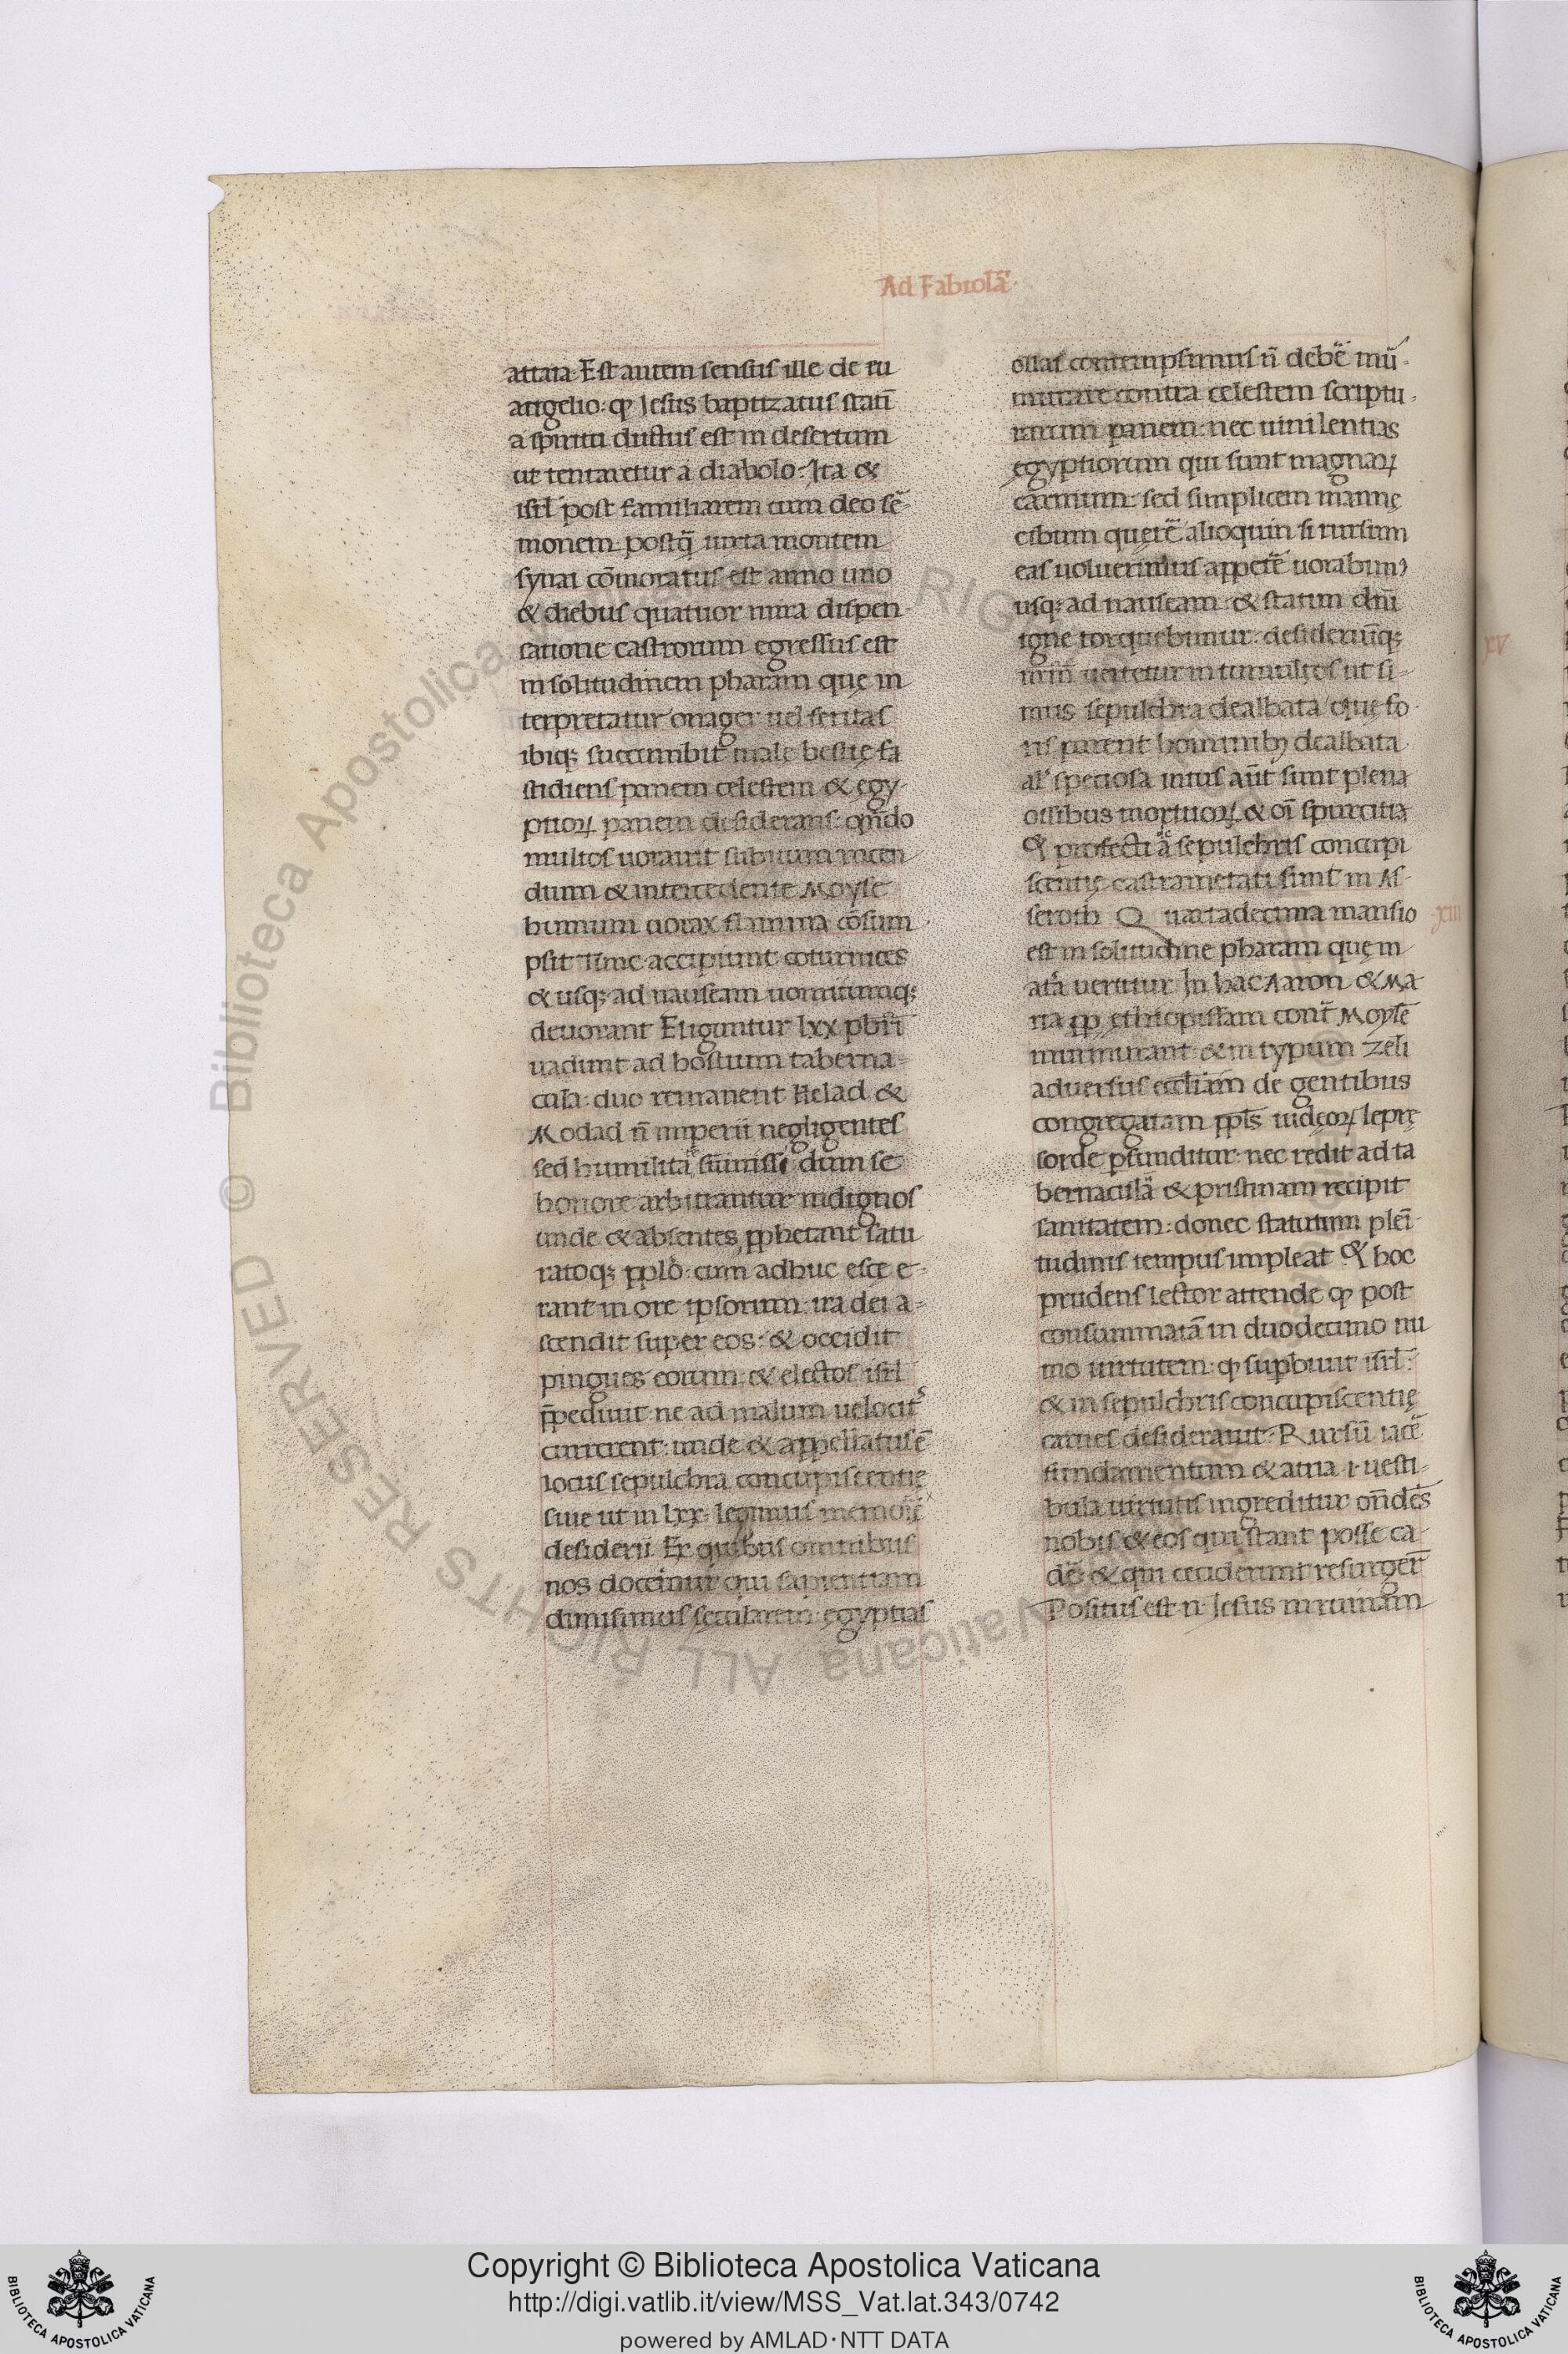 Ad Fabiolā
attaia Est autem sensus ille de eu
angelio: ꝙ Jesus baptizatus statī
a spiritu ductus est in desertum
ut tentaretur a diabolo: Ita &
isrl̄ post familiarem cum deo sē-
monem postq̄ iuxta montem
synai cōmoratus est anno uno
& diebus quatuor mira dispen-
satione castrorum egressus est
in solitudinem pharam quę in
terpretatur onager uel feritas
ibiq; succumbit male bestię fa
stidiens panem celestem & egy-
ptioꝝ panem desiderans: qn̄do
multos uorauit subitum incen
dium & intercedente Moyse
humum uorax flamma cōsum
psit Tunc accipiunt coturnices
& usq; ad nauseam uomitumq;
deuorant Eliguntur lxx pbr̄i
uadunt ad hostium taberna-
cula: duo remanent Helad &
Modad n̄ imperii negligentes
sed humilitā sūmissi dum se
honore arbitrantur indignos
unde & absentes ꝓphetant satu
ratoq; ꝑplo: cum adhuc escę e-
rant in ore ipsorum: ira dei a-
scendit super eos: & occidit
pingues eorum: & electos isrl̄
p̄pediuit ne ad malum uelocit᾽
currerent: unde & appellatus ē
locus sepulchra concupiscentię
siue ut in lxx legimus memorię
desiderii Ex quibus omnibus
nos docemur qui sapientiam
dimisimus secularem: egyptias
ollas contempsimus n̄ debē mū-
murare contra celestem scriptu-
rarum panem: nec uini lentias
egyptiorum qui sunt magnaꝝ
carnium: sed simplicem mannę
cibum querē alioquin si rursum
eas uoluerimus appetē uorabim᾽
usq; ad nauseam: & statim dn̄i
igne torquebimur: desideriūq;
nr̄m̄ uertetur in tumultos ut si-
mus sepulchra dealbata quę fo-
ris parent hominibꝫ dealbata
al᾽ speciosa intus aūt sunt plena
ossibus mortuoꝝ & oī spurcitia
& profecti de sepulchris concupi
scentię castrametati sunt in As-
seroth Quartadecima mansio xiiii
est in solitudine pharam quę in
atā uertitur In hac Aaron & Ma
ria ꝓp ethiopissam cont̄ Moysē
murmurant: & in typum zeli
aduersus eccl̄iam de gentibus
congregatam ꝑpls iudeoꝝ leprę
sorde ꝑfunditur: nec redit ad ta
bernaculā & pristinam recipit
sanitatem: donec statutum pleī-
tudinis tempus impleat & hoc
prudens lector attende ꝙ post
consummatā in duodecimo nu
mo uirtutem: ꝙ supbiuit isrl̄:
& in sepulchris concupiscentię
carnes desiderauit: Rursū iacē
fundamentum & atria ⁊ uesti-
bula uirtutis ingreditur on̄dēs
nobis & eos qui stant posse ca-
dē & qui ceciderunt resurgeꝛ̄
Positus est n̄ Jesus in ruinam
xv
© Biblioteca Apostolica Vaticana ALL RIGHTS RESERVED
Copyright © Biblioteca Apostolica Vaticana
http://digi.vatlib.it/view/MSS_Vat.lat.343/0742
powered by AMLAD·NTT DATA
BIBLIOTECA APOSTOLICA VATICANA
BIBLIOTECA APOSTOLICA VATICANA